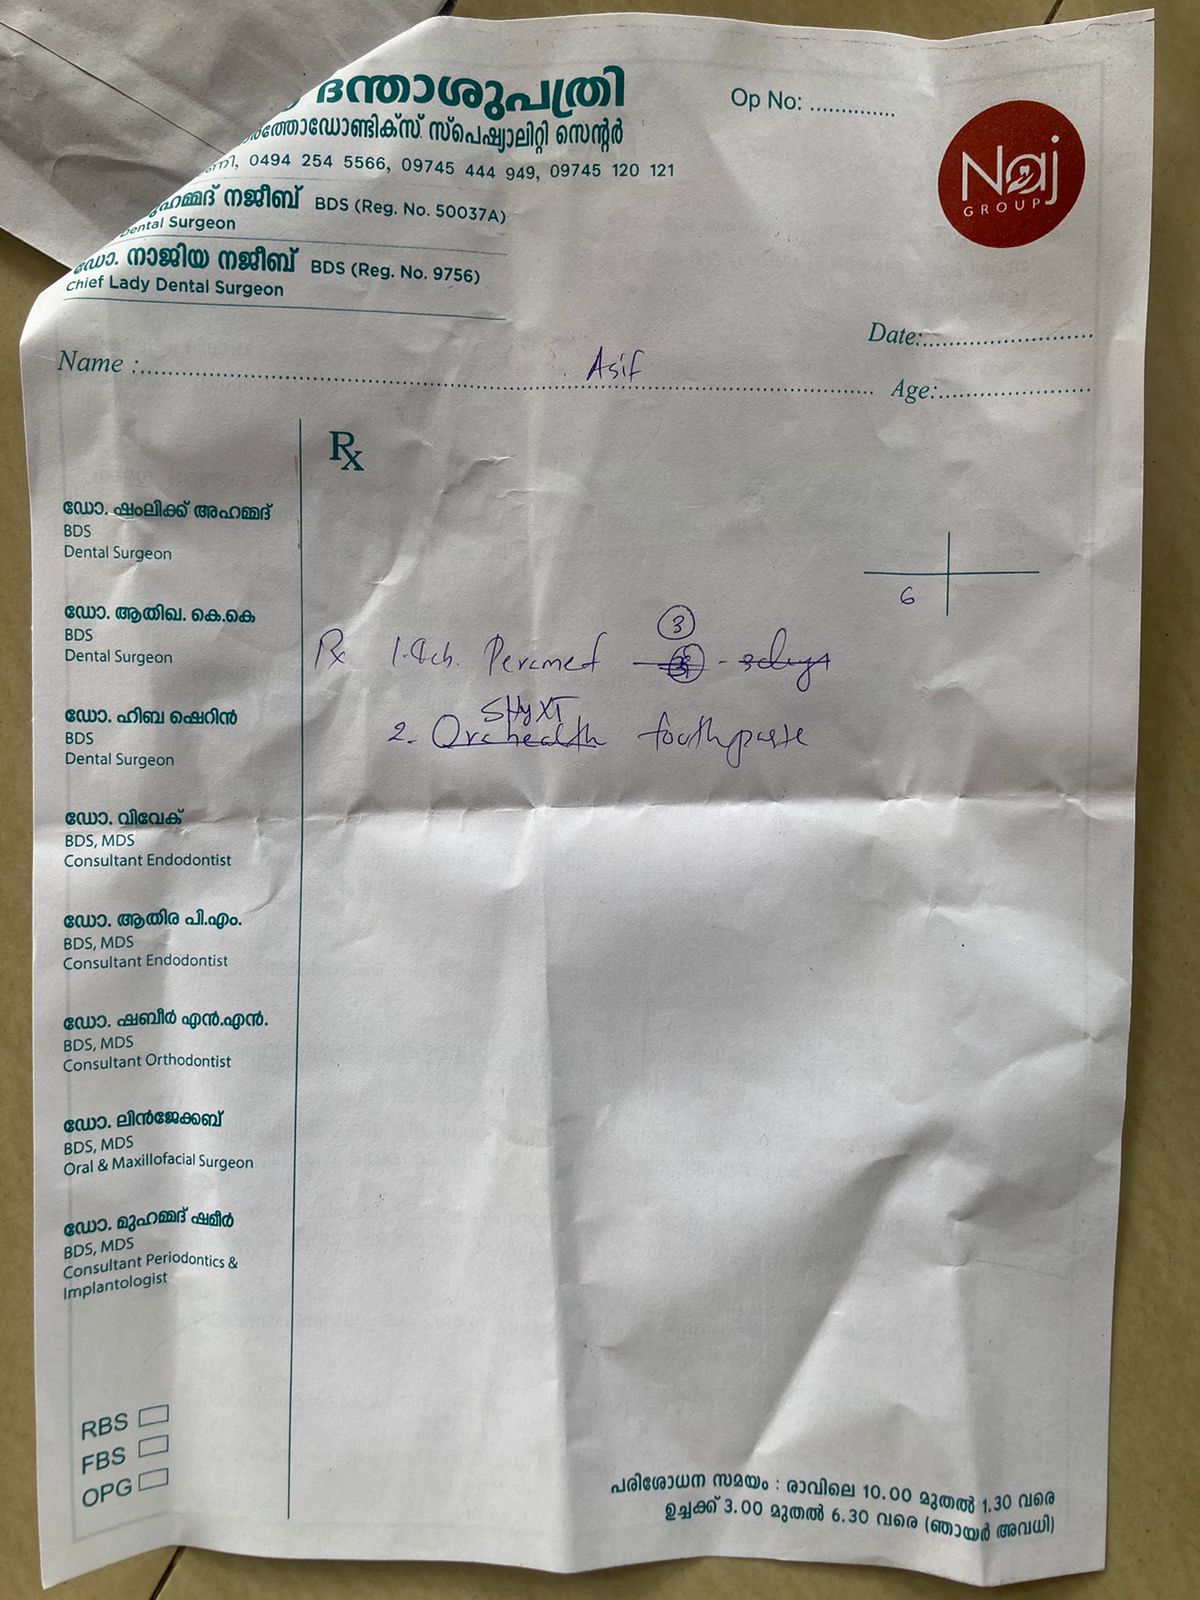 ദന്താശുപത്രി
ർത്തോഡോണ്ടിക്സ് സ്പെഷ്യാലിറ്റി സെന്റർ
0494 254 5566, 09745 444 949, 09745 120 121
Op No: ..............
Naj
GROUP
മുഹമ്മദ് നജീബ് BDS (Reg. No. 50037A)
Dental Surgeon
ഡോ. നാജിയ നജീബ് BDS (Reg. No. 9756)
Chief Lady Dental Surgeon
Date:..............................
Name :.............................. Asif
Age:..............................
Rx
6
ഡോ. ഷംലിക്ക് അഹമ്മദ്
BDS
Dental Surgeon
ഡോ. ആതിഖ. കെ.കെ
BDS
Dental Surgeon
ഡോ. ഹിബ ഷെറിൻ
BDS
Dental Surgeon
ഡോ. വിവേക്
BDS, MDS
Consultant Endodontist
ഡോ. ആതിര പി.എം.
BDS, MDS
Consultant Endodontist
ഡോ. ഷബീർ എൻ.എൻ.
BDS, MDS
Consultant Orthodontist
ഡോ. ലിൻജേക്കബ്
BDS, MDS
Oral & Maxillofacial Surgeon
ഡോ. മുഹമ്മദ് ഷമീർ
BDS, MDS
Consultant Periodontics &
Implantologist
3
Rx 1. Peromed - 3days
SHyXT
2. Orahealth toothpaste
RBS
FBS
OPG
പരിശോധന സമയം : രാവിലെ 10.00 മുതൽ 1.30 വരെ
ഉച്ചക്ക് 3.00 മുതൽ 6.30 വരെ (ഞായർ അവധി)